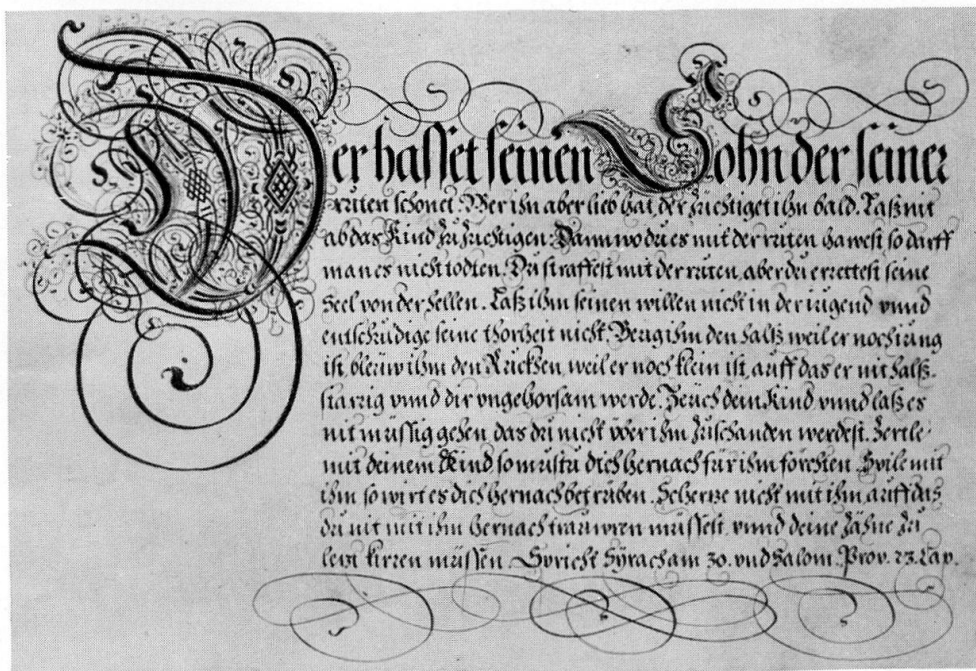 Der hasset seinen Sohn der seiner
růten schonet. Wer ihn aber lieb hat, der züchtiget ihn bald. Laß nit
ab das Kind zů züchtigen. Dann wo du es mit der růten hawest so darff
man es nicht tödten. Du straffest mit der růten, aber du errettest seine
Seel von der Hellen. Laß ihm seinen willen nicht in der iugend vnnd
entschuldige seine thorheit nicht. Beug ihm den halß weil er noch iung
ist, bleüw ihm den Rucken, weil er noch klein ist, auff das er nit halß-
starrig vnnd dir vngehorsam werde. Zeuch dein Kind vnnd laß es
nit müssig gehen das du nicht vber ihm zuschanden werdest. Zertle
mit deinem Kind, so můstu dich hernach für ihm förchten. Spile mit
ihm so wirt es dich hernach betrüben. Schertze nicht mit ihm, auff das
du nit mit ihm hernach trauwren müssest, vnnd deine Zähne zu
letzt kirren müssen. Spricht Syrach am 30. vnd Salom. Prov. 23. Cap.